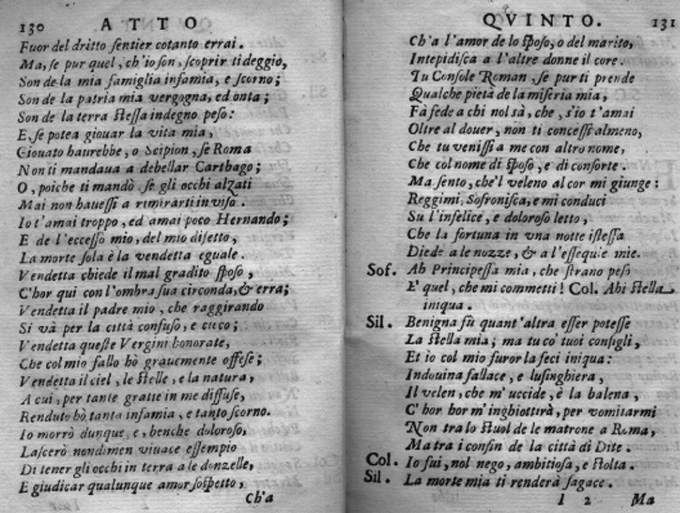 130 ATTO
Fuor del dritto sentier cotanto errai.
Ma, se pur quel, ch'io son, scoprir ti deggio,
Son de la mia famiglia infamia, e scorno;
Son de la patria mia vergogna, ed onta;
Son de la terra stessa indegno peso:
E, se potea giouar la vita mia,
Giouato haurebbe, o Scipion, se Roma
Non ti mandaua a debellar Carthago;
O, poiche ti mandò, se gli occhi alzati
Mai non hauessi a rimirarti in viso.
Io t'amai troppo, ed amai poco Hernando;
E de l'eccesso mio, del mio difetto,
La morte sola è la vendetta eguale.
Vendetta chiede il mal gradito sposo,
C'hor qui con l'ombra sua circonda, & erra;
Vendetta il padre mio, che raggirando
Si và per la città confuso, e cieco;
Vendetta queste Vergini honorate,
Che col mio fallo hò grauemente offese;
Vendetta il ciel, le stelle, e la natura,
A cui, per tante gratie in me diffuse,
Renduto hò tanta infamia, e tanto scorno.
Io morrò dunque, e, benche doloroso,
Lascerò nondimen viuace essempio
Di tener gli occhi in terra a le donzelle,
E giudicar qualunque amor sospetto,
Ch'a
QVINTO. 131
Ch'a l'amor de lo sposo, o del marito,
Intepidisca a l'altre donne il core.
Tu Console Roman, se pur ti prende
Qualche pietà de la miseria mia,
Fà fede a chi nol sà, che, s'io t'amai
Oltre al douer, non ti concessi almeno,
Che tu venissi a me con altro nome,
Che col nome di sposo, e di consorte.
Ma sento, che'l veleno al cor mi giunge:
Reggimi, Sofronisca, e mi conduci
Su l'infelice, e doloroso letto,
Che la fortuna in vna notte istessa
Diede a le nozze, & a l'essequie mie.
Sof. Ah Principessa mia, che strano peso
E' quel, che mi commetti! Col. Ahi stella
iniqua.
Sil. Benigna fù quant'altra esser potesse
La stella mia; ma tu co' tuoi consigli,
Et io col mio furor la feci iniqua:
Indouina fallace, e lusinghiera,
Il velen, che m'uccide, è la balena,
C'hor hor m'inghiottirà, per vomitarmi
Non tra lo stuol de le matrone a Roma,
Ma tra i confin de la città di Dite.
Col. Io fui, nol nego, ambitiosa, e stolta.
Sil. La morte mia ti renderà sagace.
I 2 Ma